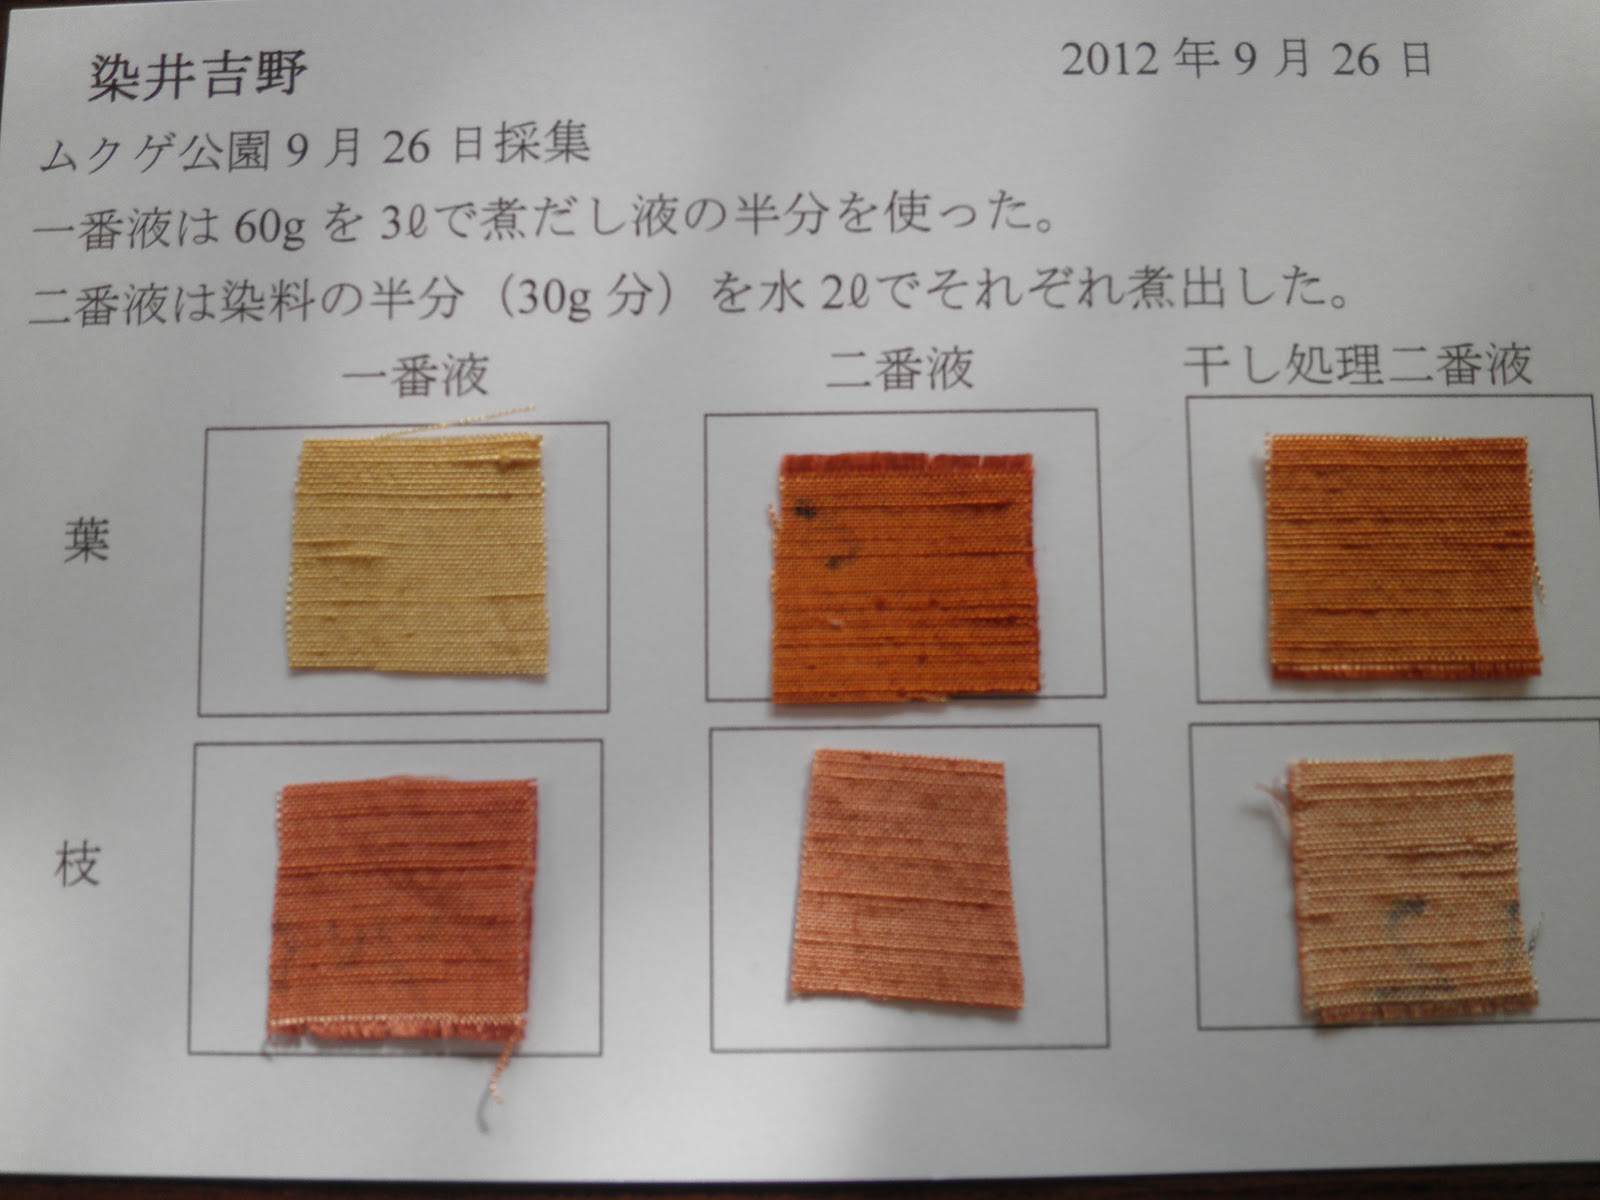 染井吉野 2012年9月26日
ムクゲ公園9月26日採集
一番液は60gを3ℓで煮だし液の半分を使った。
二番液は染料の半分（30g分）を水2ℓでそれぞれ煮出した。
一番液 二番液 干し処理二番液
葉
枝